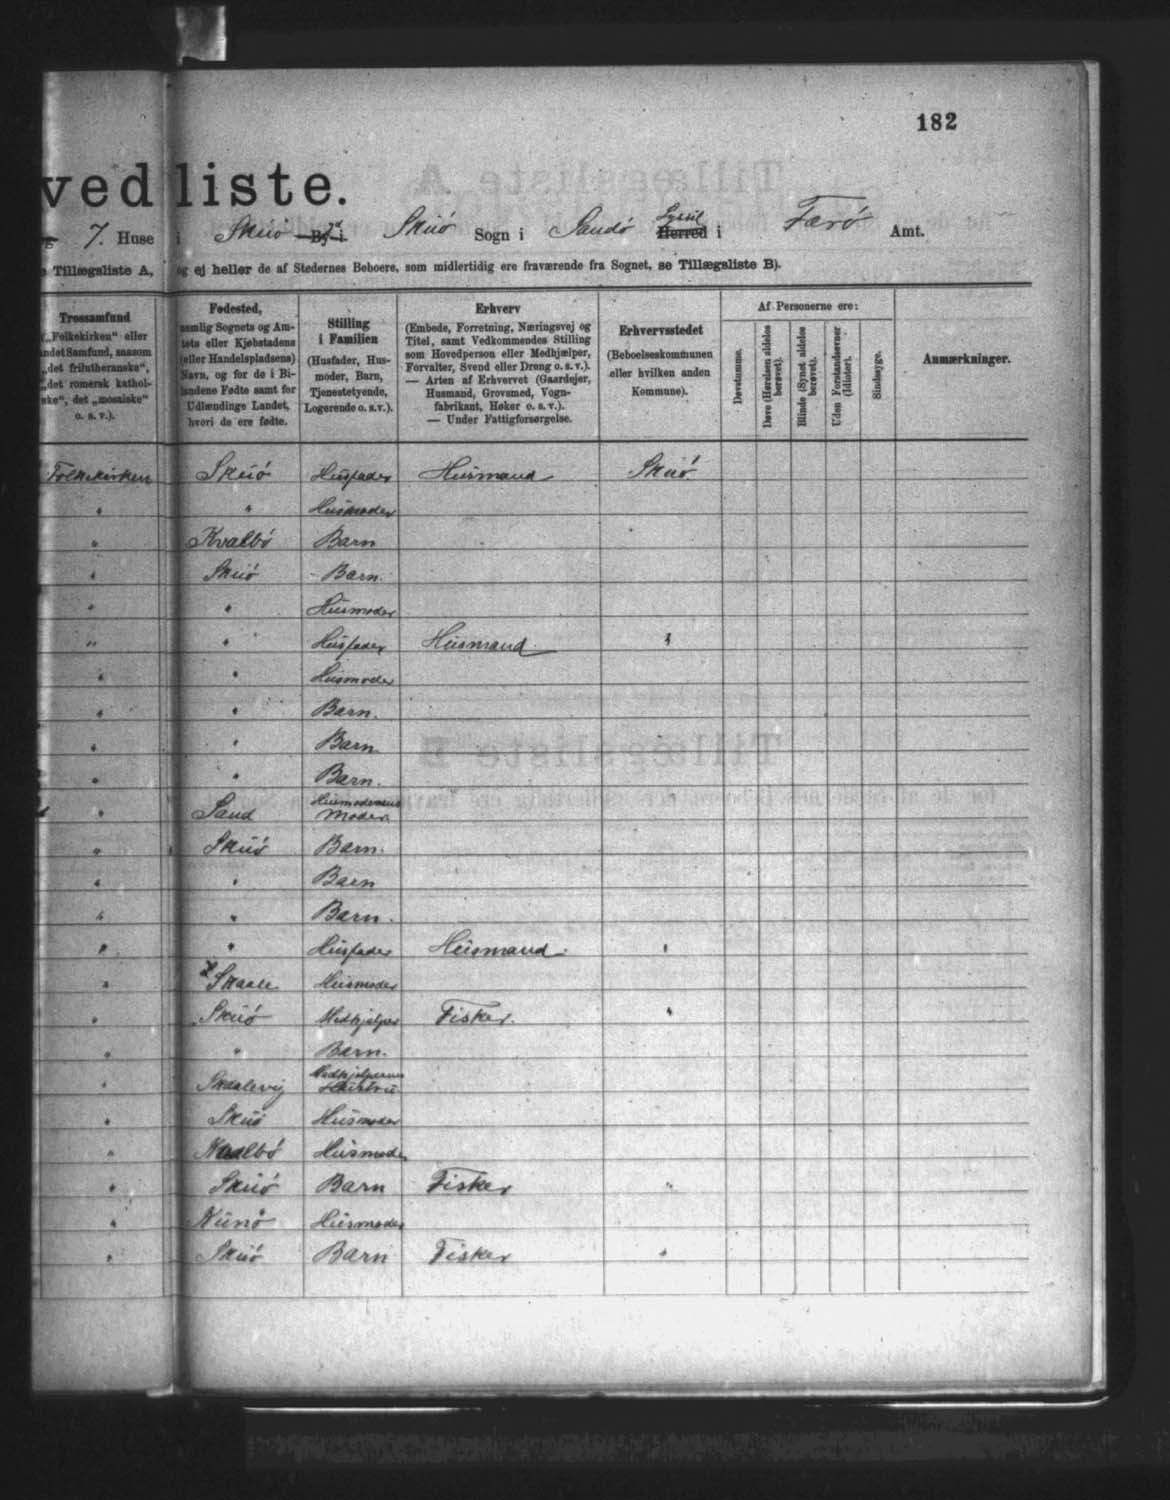 182
vedliste.
7. Huse i Skuö By i Skuö Sogn i Sandö Syssel Herred i Færö Amt.
Tillægsliste A, og ej heller de af Stedernes Beboere, som midlertidig ere fraværende fra Sognet, se Tillægsliste B).
Trossamfund
„Folkekirken“ eller
andet Samfund, saasom
„det frilutheranske“,
„det romersk kathol-
ske“, det „mosaiske“
o. s. v.).
Fødested,
nemlig Sognets og Am-
tets eller Kjøbstadens
(eller Handelspladsens)
Navn, og for de i Bi-
landene Fødte samt for
Udlændinge Landet,
hvori de ere fødte.
Stilling
i Familien
(Husfader, Hus-
moder, Barn,
Tjenestetyende,
Logerende o. s. v.).
Erhverv
(Embede, Forretning, Næringsvej og
Titel, samt Vedkommendes Stilling
som Hovedperson eller Medhjælper,
Forvalter, Svend eller Dreng o. s. v.).
— Arten af Erhvervet (Gaardejer,
Husmand, Grovsmed, Vogn-
fabrikant, Høker o. s. v.).
— Under Fattigforsørgelse.
Erhvervsstedet
(Beboelseskommunen
eller hvilken anden
Kommune).
Af Personerne ere:
Døvstumme.
Døve (Hørelsen aldeles
berøvet).
Blinde (Synet aldeles
berøvet).
Uden Forstandsevner
(Idioter).
Sindssyge.
Anmærkninger.
Folkekirken Skuö Husfader Husmand Skuö.
" " Husmoder
" Kvalbö Barn
" Skuö Barn.
" " Husmoder
" " Husfader Husmand. "
" " Husmoder
" " Barn.
" " Barn
" " Barn.
" Sand Husmoderens Moder
" Skuö Barn.
" " Barn
" " Barn.
" " Husfader Husmand. "
" Skaale Husmoder
" Skuö Medhjelper Fisker. "
" " Barn.
" Skaalevig Medhjelperens Hustru
" Skuö Husmoder
" Kvalbö Husmoder
" Skuö Barn Fisker "
" Kunö Husmoder
" Skuö Barn Fisker "